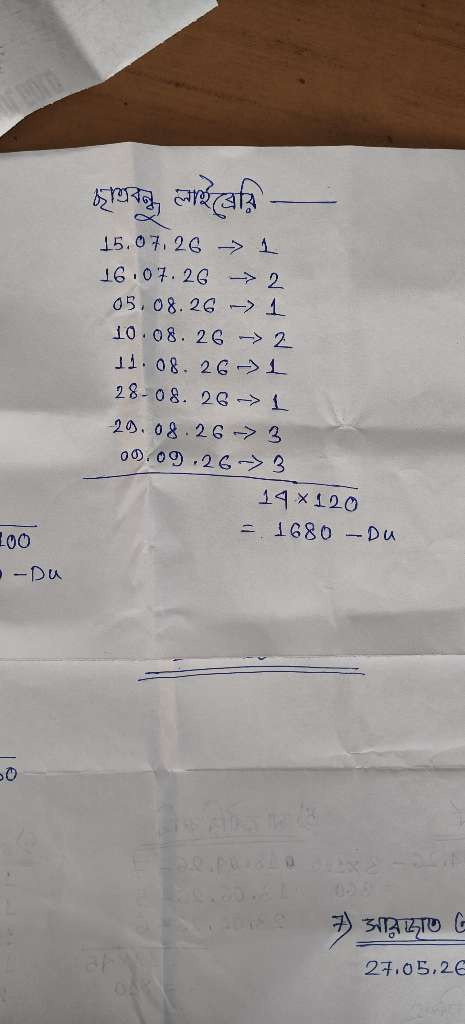 ছাত্রবন্ধু লাইব্রেরি —
15.07.26 → 1
16.07.26 → 2
05.08.26 → 1
10.08.26 → 2
11.08.26 → 1
28-08.26 → 1
29.08.26 → 3
09.09.26 → 3
14 × 120
= 1680 – Du
100
– Du
50
7)
27.05.26